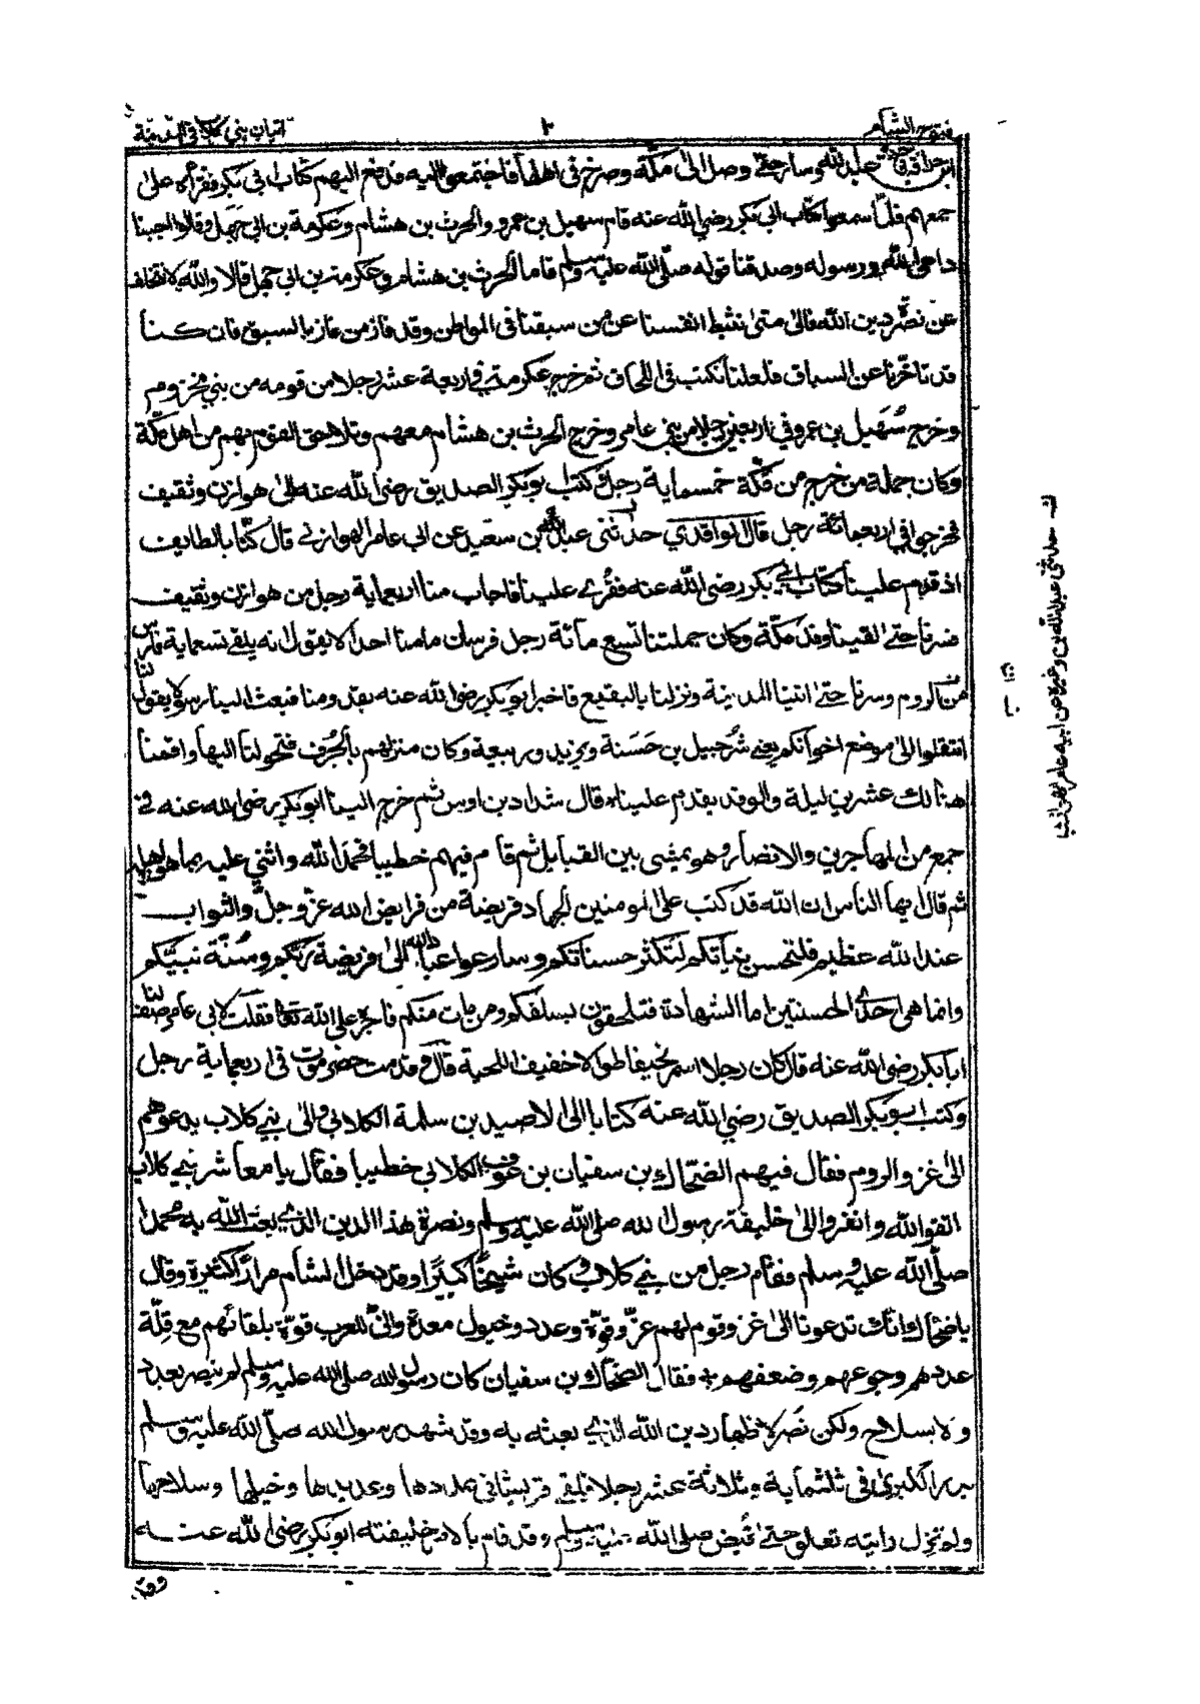 فتوح الشام
٢
اتيان بني كلاب في المدينة
وسار حتى وصل الى مكة وصرخ في اهلها فاجتمعوا اليه فدفع اليهم كتاب ابي بكر فقرأه على
جمعهم فلما سمعوا كتاب ابي بكر رضي الله عنه قام سهيل بن عمرو والحرث بن هشام وعكرمة بن ابي جهل وقالوا اجبنا
داعي الله ورسوله وصدقنا قوله صلى الله عليه وسلم فاما الحرث بن هشام وعكرمة بن ابي جهل قالا والله لا نتخلف
عن نصرة دين الله فالى متى نثبط انفسنا عن من سبقنا في المواطن وقد فاز من فاز بالسبق فان كنا
قد تاخرنا عن السباق فلعلنا نكتب في اللحاق ثم خرج عكرمة في اربعة عشر رجلا من قومه من بني مخزوم
وخرج سُهَيل بن عمرو في اربعين رجلا من بني عامر وخرج الحرث بن هشام معهم وتلاحق القوم بهم من اهل مكة
وكان جملة من خرج من مكة خمسماية رجل وكتب ابوبكر الصديق رضي الله عنه الى هوازن وثقيف
فخرجوا في اربعمائة رجل قال الواقدي حدثنى عبد الله بن سعيد عن ابي عامر الهوازني قال كنا بالطايف
اذ قدم علينا كتاب ابي بكر رضي الله عنه فقرئ علينا فاجاب منا اربعماية رجل من هوازن وثقيف
فسرنا حتى لقينا وفد مكة وكان جملتنا تسع مائة رجل فرسان مامنا احدا لا يقول انه يلقى تسعماية فارس
من الروم وسرنا حتى اتينا المدينة ونزلنا بالبقيع فاخبر ابوبكر رضي الله عنه بقدومنا فبعث الينا رسولا يقول لنا
انتقلوا الى موضع اخوانكم يعني شرحبيل بن حَسَنة ويزيد وربيعة وكان منزلهم بالجُرف فتحولنا اليها واقمنا
هنالك عشرين ليلة والوفد يقدم علينا قال شداد بن اوس ثم خرج الينا ابوبكر رضي الله عنه في
جمع من المهاجرين والانصار وهو يمشي بين القبايل ثم قام فيهم خطيبا فحمد الله واثني عليه بما هو اهله
ثم قال ايها الناس ان الله قد كتب على المومنين الجهاد فريضة من فرايض الله عز وجل والثواب
عند الله عظيم فلتحسن نياتكم لتكثر حسناتكم وسارعوا عباد الله الى فريضة ربكم وسُنّة نبيّكم
وانما هي احدى الحسنتين اما الشهادة فتلحقون بسلفكم ومن مات منكم فاجره على الله تعالى فقلت لابي عامر صف لنا
ابابكر رضي الله عنه قال كان رجلا اسمر نحيفا طوالا خفيف اللحية قال وقدمت حضرموت في اربعماية رجل
وكتب ابوبكر الصديق رضي الله عنه كتابا الى الاصيد بن سلمة الكلابي والى بني كلاب يدعوهم
الى غزو الروم فقال فيهم الضحاك بن سفيان بن عوف الكلابي خطيبا فقال يا معاشر بني كلاب
اتقوا الله وانفروا الى خليفة رسول الله صلى الله عليه وسلم ونصرة هذا الدين الذي بعث الله به محمدا
صلى الله عليه وسلم فقام رجل من بني كلاب وكان شيخا كبيرا وقد دخل الشام مرارا كثيرة وقال
يا ضحاك وانك تدعونا الى غزو قوم لهم عزّ وقوة وعدد وخيول معدة وانّى للعرب قوة بلقائهم مع قِلّة
عددهم وجوعهم وضعفهم فقال الضحاك بن سفيان كان رسول الله صلى الله عليه وسلم لم ينصر بعدد
ولا بسلاح ولكن نُصر لاظهار دين الله الذي بعثه به وقد شهد رسول الله صلى الله عليه وسلم
بدر الكبرى في ثلثماية وثلاثة عشر رجلا فلقي قريشا في عددها وعديدها وخيلها وسلاحها
ولم تزل رايته تعلو حتى قُبض صلى الله عليه وسلم وقد قام بالامر خليفته ابوبكر رضي الله عنه
وقد
حدثنى عبد الله بن وغيره عن ابيه عامر